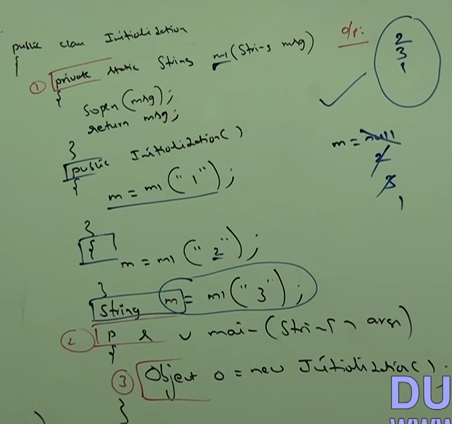 public class Initialization
{
① private static String m1(String msg)
{
Sopln(msg);
return msg;
}
public Initialization()
{
m = m1("1");
}
{
m = m1("2");
}
String m = m1("3");
② p s v main(String[] args)
{
③ Object o = new Initialization();
}
)
o/p:
2
3
1
m = null
2
3
1
DU
WWW